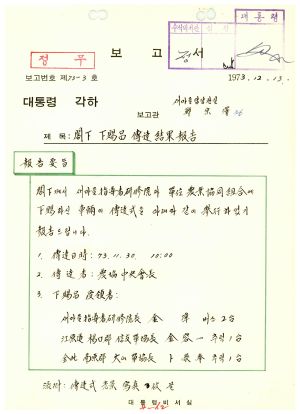 대통령
수석비서관
정무
보고서
보고번호 제73-3호
1973.12.13.
대통령 각하
보고관
제목: 閣下 下賜品 傳達 結果報告
報告要旨
閣下께서 새마을指導者硏修院과 單位 農業協同組合에
下賜하신 車輛의 傳達式을 아래와 같이 擧行하였기
報告드립니다.
1. 傳達日時: 73.11.30. 10:00
2. 傳達者: 農協中央會長
3. 下賜品 受領者:
새마을指導者硏修院長 金 準 버스 2台
江原道 楊口郡 組長 金 1台
全北 南原郡 組長 1台
添附: 傳達式 寫眞
대통령비서실